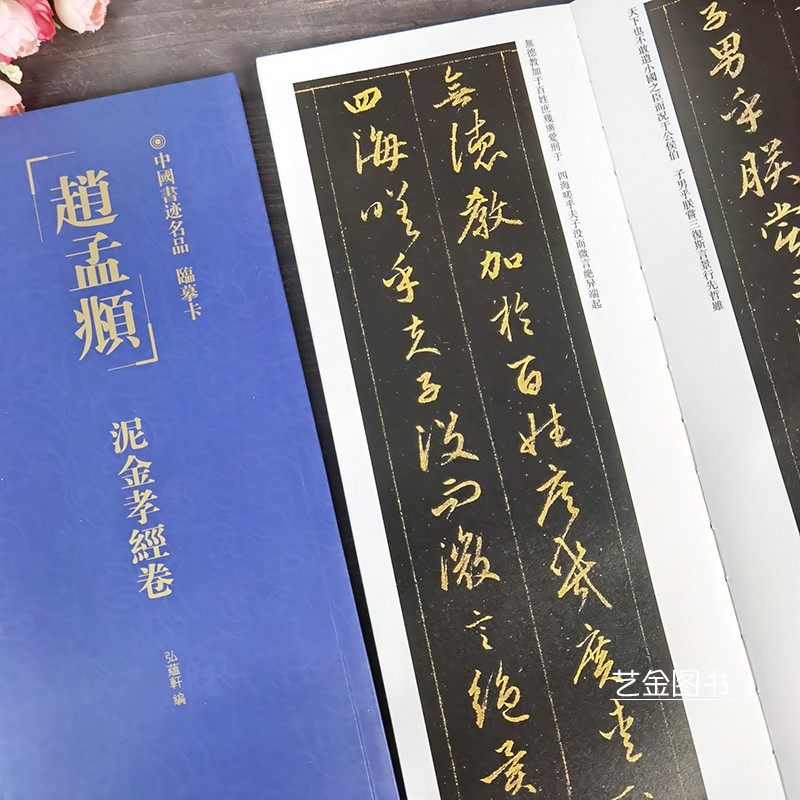 中國書迹名品 臨摹卡
趙孟頫
泥金孝經卷
弘蘊軒 編
無德教加于百姓庶幾廣愛刑于 四海嗟乎夫子没而微言絶异端起
無德教加於百姓庶幾廣愛
四海嗟乎夫子没而微言絶異
天下也不敢遺小國之臣而况于公侯伯 子男乎朕嘗三復斯言景行先哲雖
子男乎朕嘗三
艺金图书